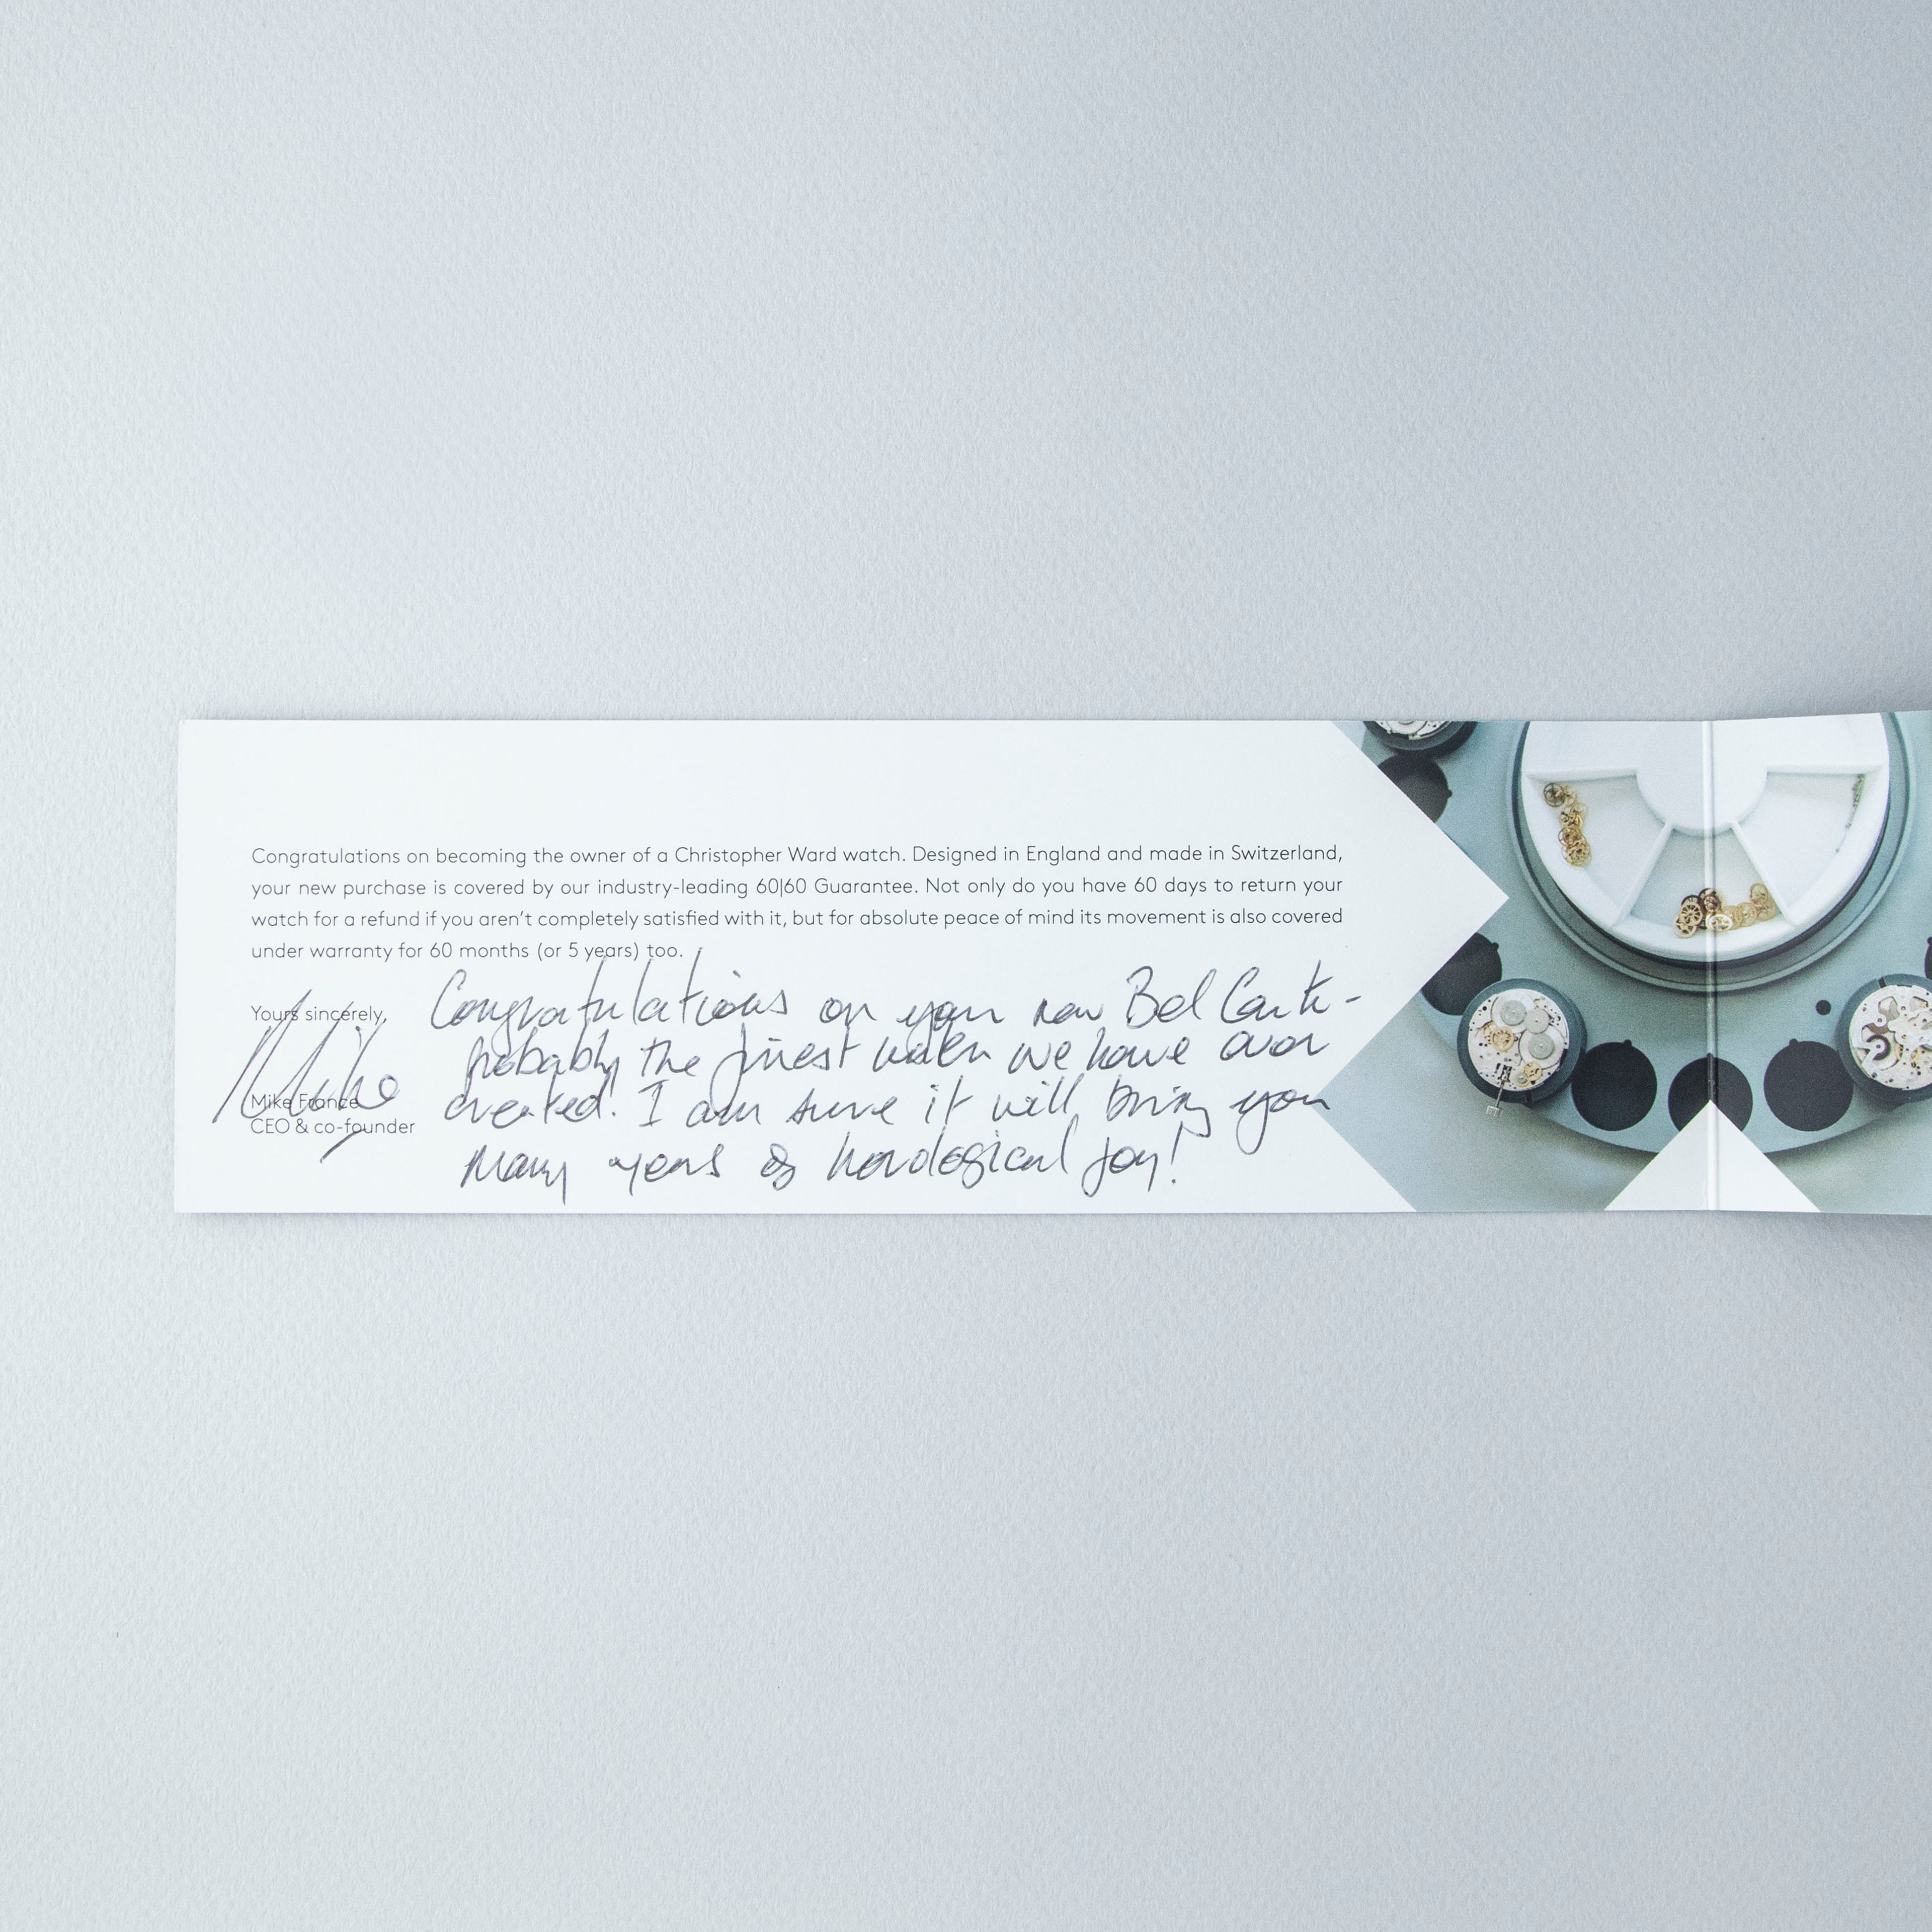 Congratulations on becoming the owner of a Christopher Ward watch. Designed in England and made in Switzerland,
your new purchase is covered by our industry-leading 60|60 Guarantee. Not only do you have 60 days to return your
watch for a refund if you aren't completely satisfied with it, but for absolute peace of mind its movement is also covered
under warranty for 60 months (or 5 years) too.
Yours sincerely,
Mike
Mike France
CEO & co-founder
Congratulations on your new Bel Canto -
probably the finest watch we have ever
created. I am sure it will bring you
many years of horological joy!